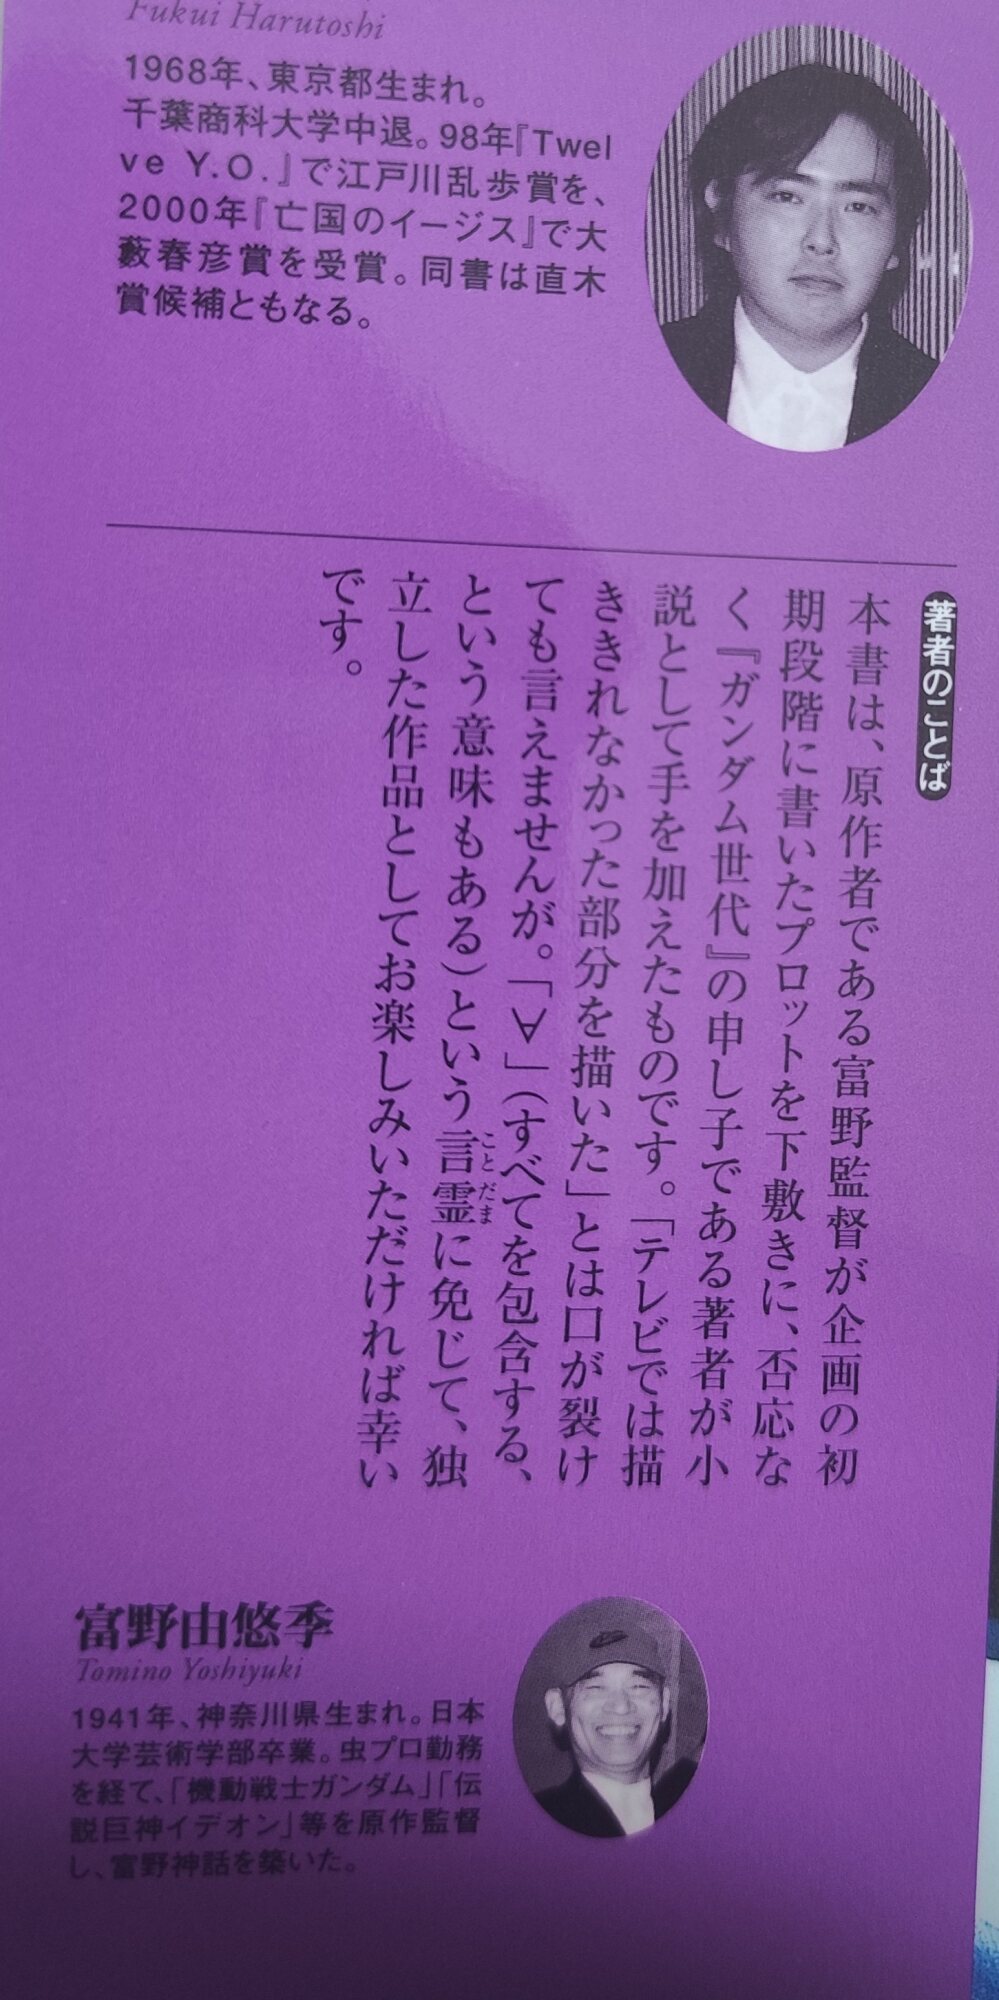 Fukui Harutoshi
1968年、東京都生まれ。
千葉商科大学中退。98年『Twel
ve Y.O.』で江戸川乱歩賞を、
2000年『亡国のイージス』で大
藪春彦賞を受賞。同書は直木
賞候補ともなる。
著者のことば
本書は、原作者である富野監督が企画の初
期段階に書いたプロットを下敷きに、否応な
く『ガンダム世代』の申し子である著者が小
説として手を加えたものです。「テレビでは描
ききれなかった部分を描いた」とは口が裂け
ても言えませんが。「∀」(すべてを包含する、
という意味もある)という言霊に免じて、独
ことだま
立した作品としてお楽しみいただければ幸い
です。
富野由悠季
Tomino Yoshiyuki
1941年、神奈川県生まれ。日本
大学芸術学部卒業。虫プロ勤務
を経て、「機動戦士ガンダム」「伝
説巨神イデオン」等を原作監督
し、富野神話を築いた。